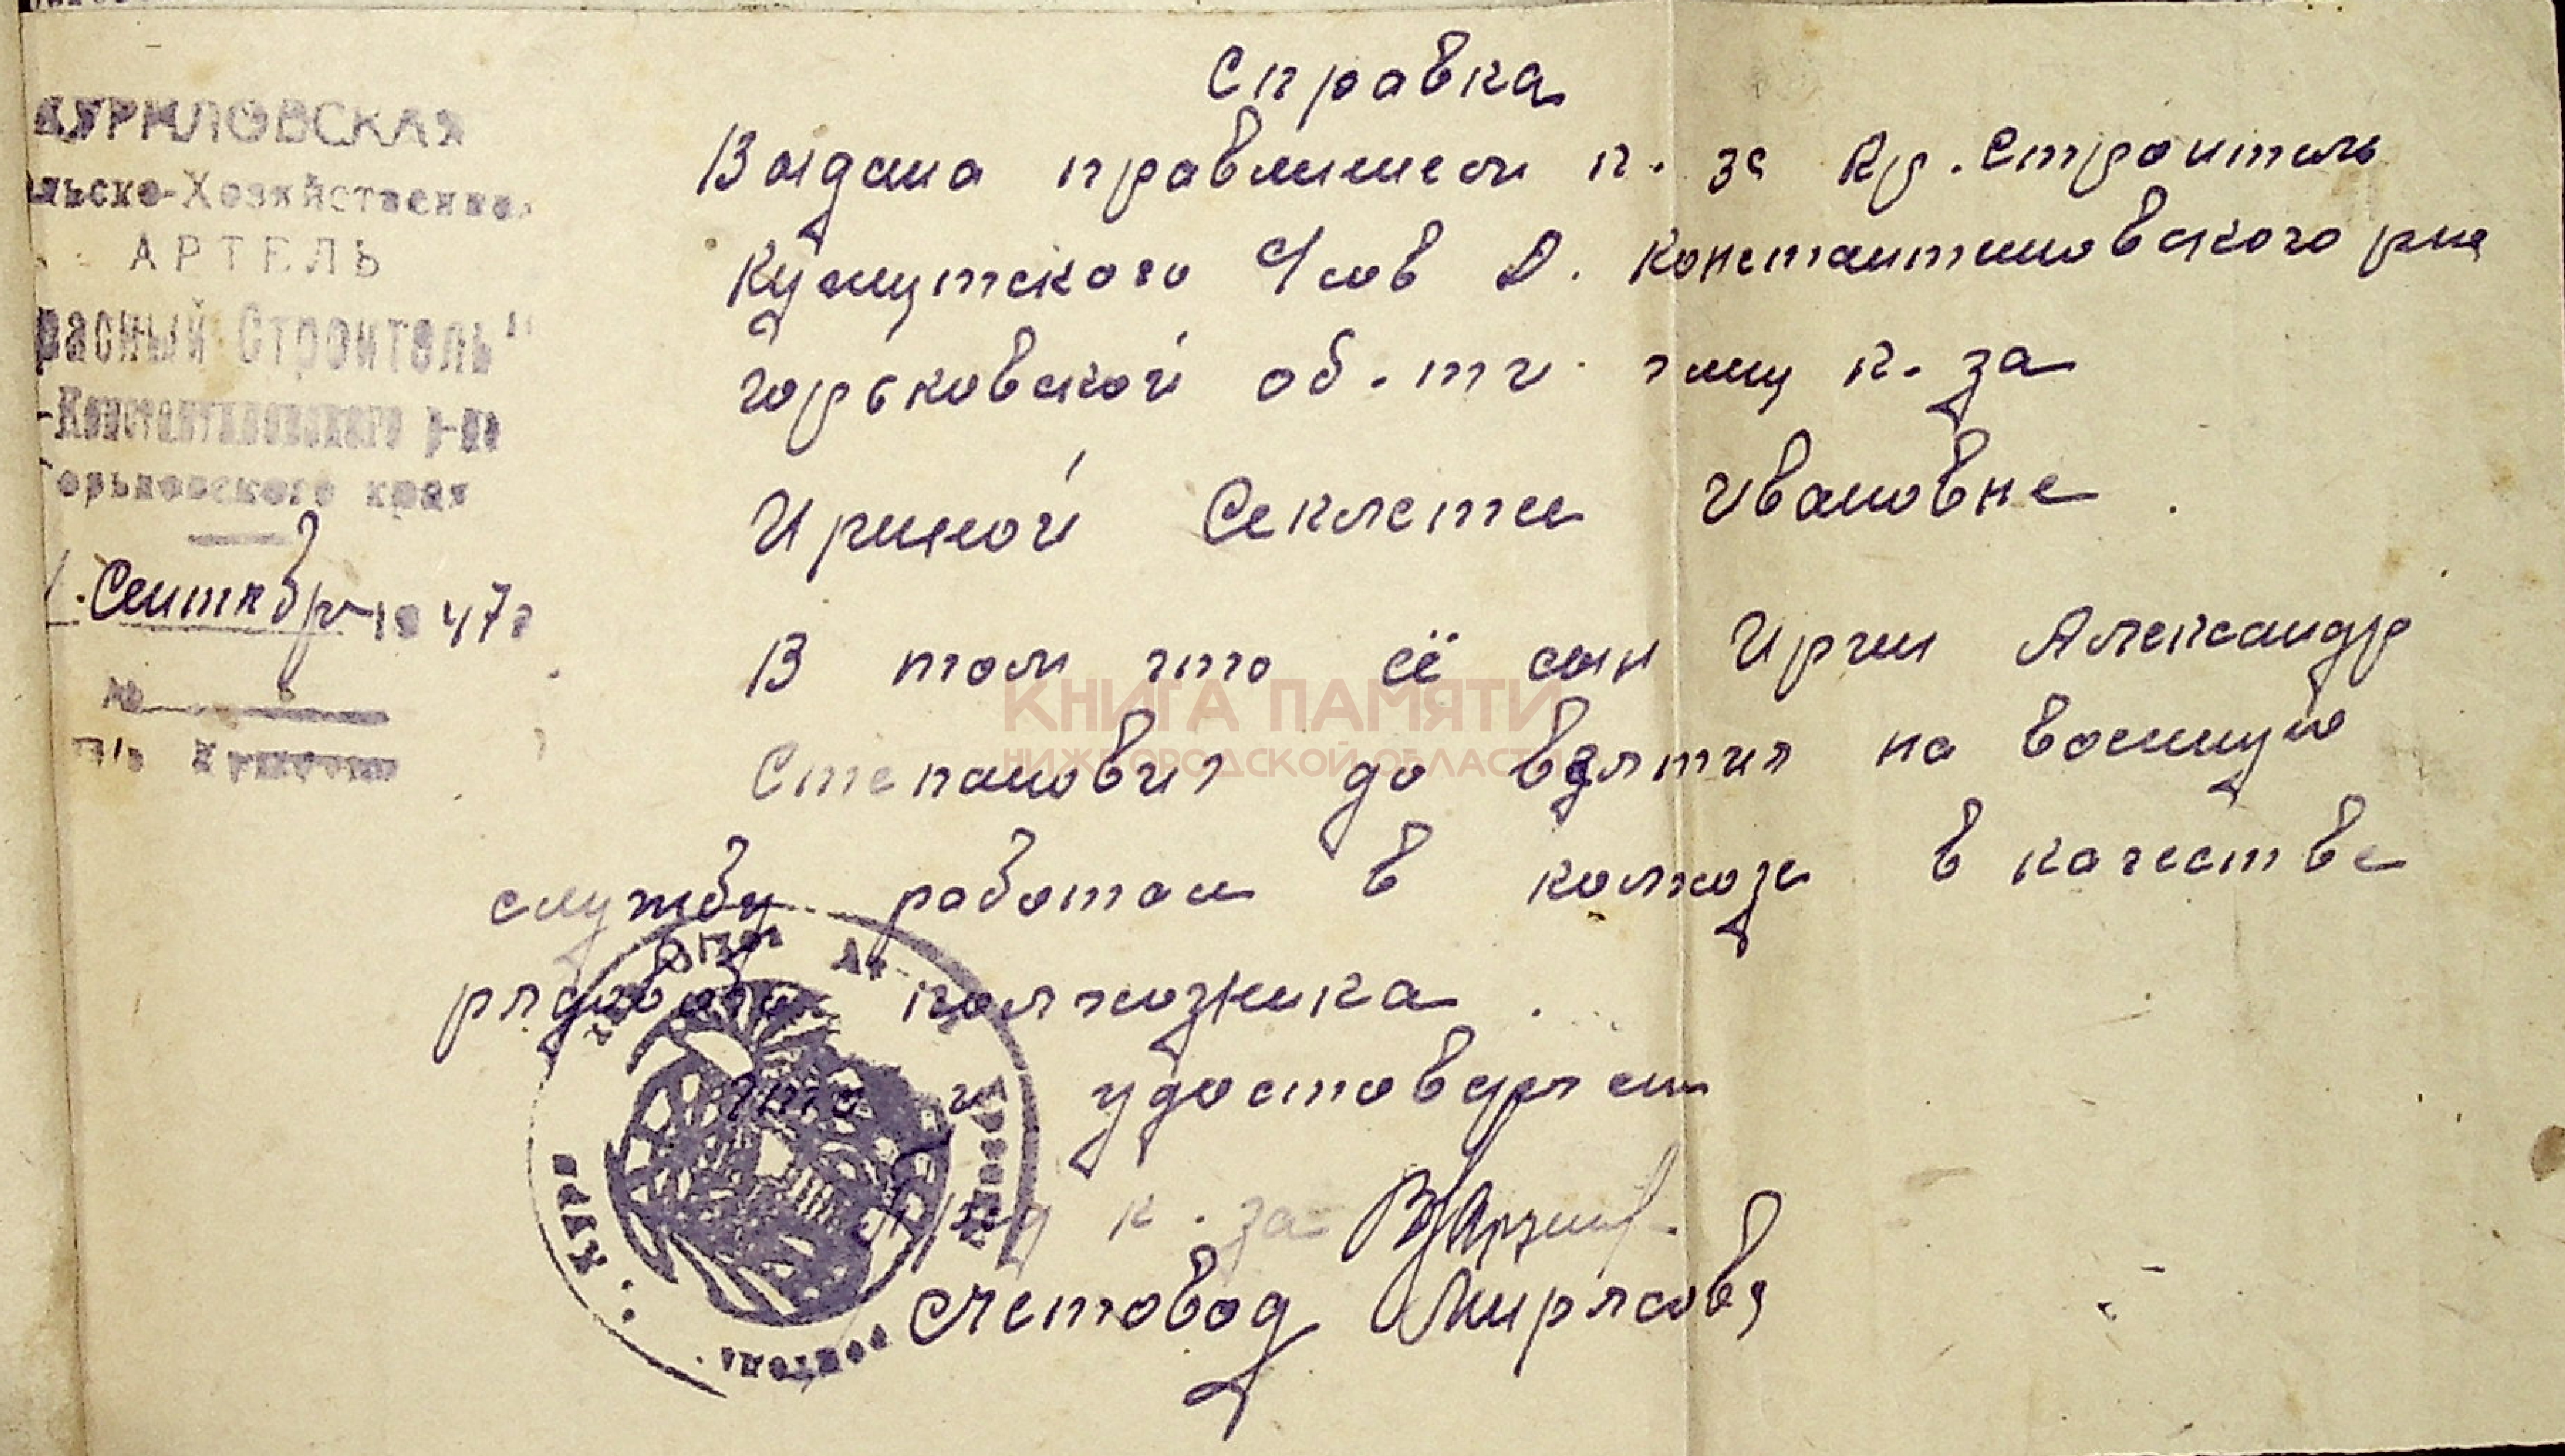 КУРИЛОВСКАЯ
льско-Хозяйственная
АРТЕЛЬ
расный Строитель"
-Константиновского р-на
Горьковского края
Сентябр 1947г
№
Справка
Выдана правлинием к-за Кр. Строитель
Кужутского С/сов Д. Константиновского р-на
Горьковской об-ти члену к-за
Ириной Секлетеи Ивановне.
В том что её сын Ирин Александр
Степанович до взятия на военную
службу работал в колхозе в качестве
рядового колхозника.
что и удостоверяем
к-за
Счетовод Мирясова
роитель
КНИГА ПАМЯТИ
НИЖЕГОРОДСКОЙ ОБЛАСТИ